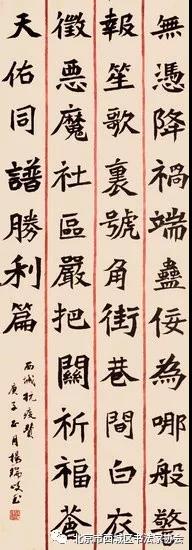 無憑降禍端蠱佞為哪般警
報笙歌裏號角街巷間白衣
徵惡魔社區嚴把關祈福蒼
天佑同譜勝利篇
西城抗疫贊
庚子正月楊瑞
北京市西城区书法家协会